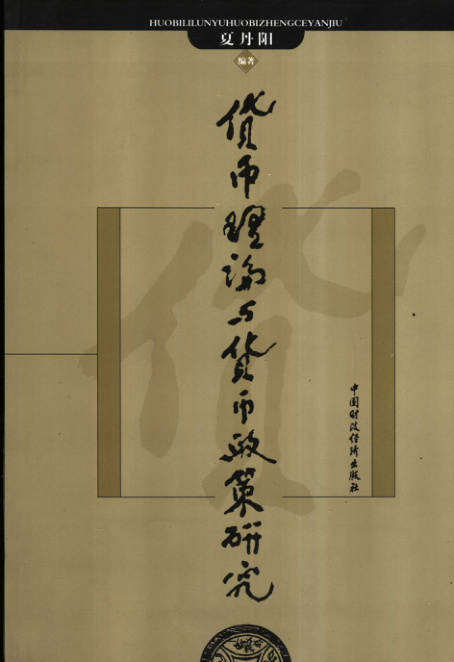 HUOBILILUNYUHUOBIZHENGCEYANJIU
夏丹阳
编著
货币理论与货币政策研究
中国财政经济出版社
货